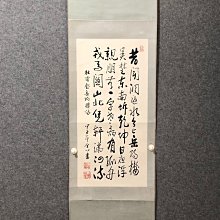 昔聞洞庭水今上岳陽樓
吳楚東南坼乾坤日夜浮
親朋無一字老病有孤舟
戎馬關山北憑軒涕泗流
杜甫登岳陽樓詩